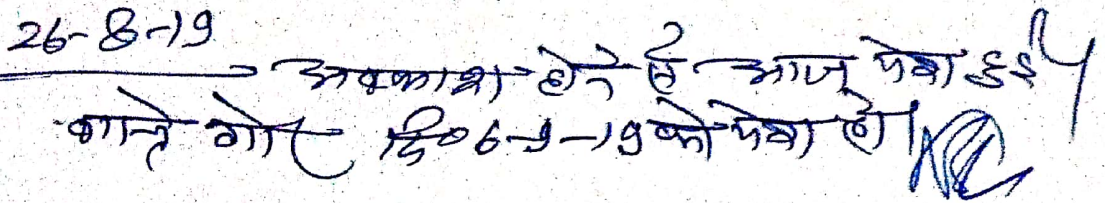 26-8-19
अवकाश होने से आज पेश हुई।
वास्ते गौर दि० 6-9-19 को पेश हो।